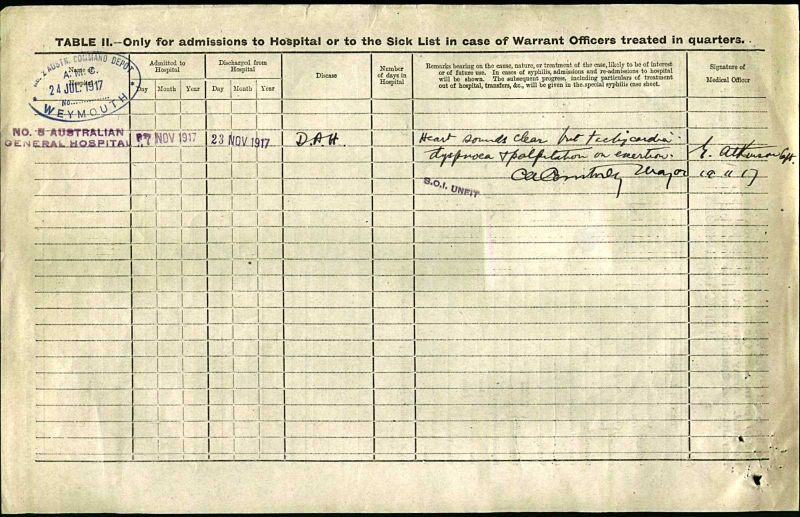 TABLE II.—Only for admissions to Hospital or to the Sick List in case of Warrant Officers treated in quarters.
Name of Hospital
Admitted to Hospital
Discharged from Hospital
Disease
Number of days in Hospital
Remarks bearing on the cause, nature, or treatment of the case, likely to be of interest
or of future use. In cases of syphilis, admissions and re-admissions to hospital
will be shown. The subsequent progress, including particulars of treatment
out of hospital, transfers, &c., will be given in the special syphilis case sheet.
Signature of Medical Officer
Day Month Year Day Month Year
AUSTN. COMMAND DEPOT
A.M.C.
24 JUL 1917
No.
WEYMOUTH
NO. 5 AUSTRALIAN
GENERAL HOSPITAL
NOV 1917
23 NOV 1917
D.A.H.
Heart sounds clear but tachycardia
dyspnoea & palpitation on exertion.
E. Atkinson Capt.
Major
19 11 17
S.O.I. UNFIT